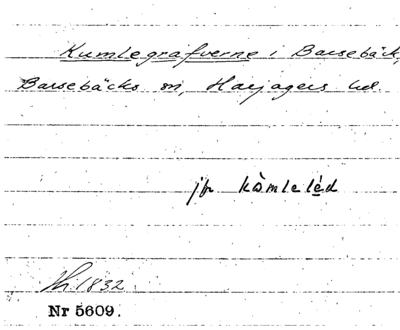 Kumlegrafverne i Barsebäck,
Barsebäcks sn, Harjagers hd.
jfr kòmlelèd
Th. 1832.
Nr 5609.